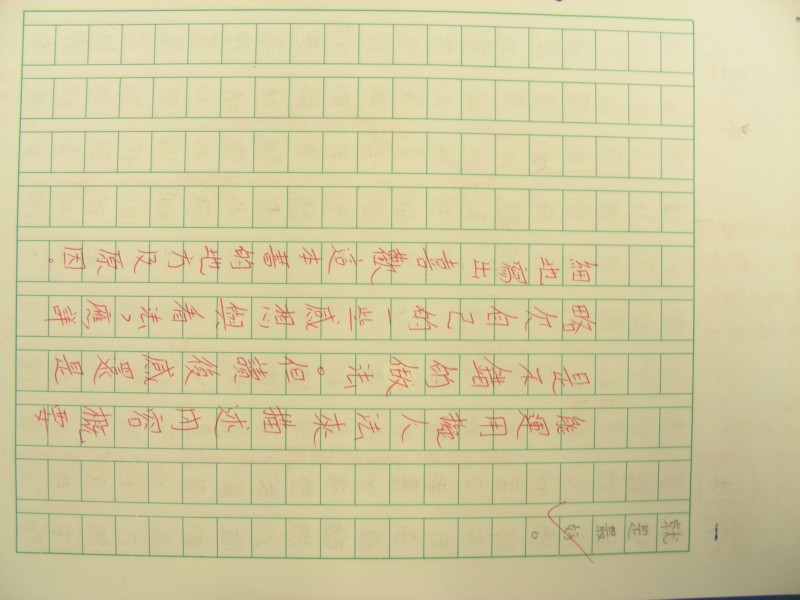 就是最好。
能運用擬人法來描述內容概要
是不錯的做法。但讀後感還是
略欠自己的一些感想與看法，應詳
細地寫出喜歡這本書的地方及原因。